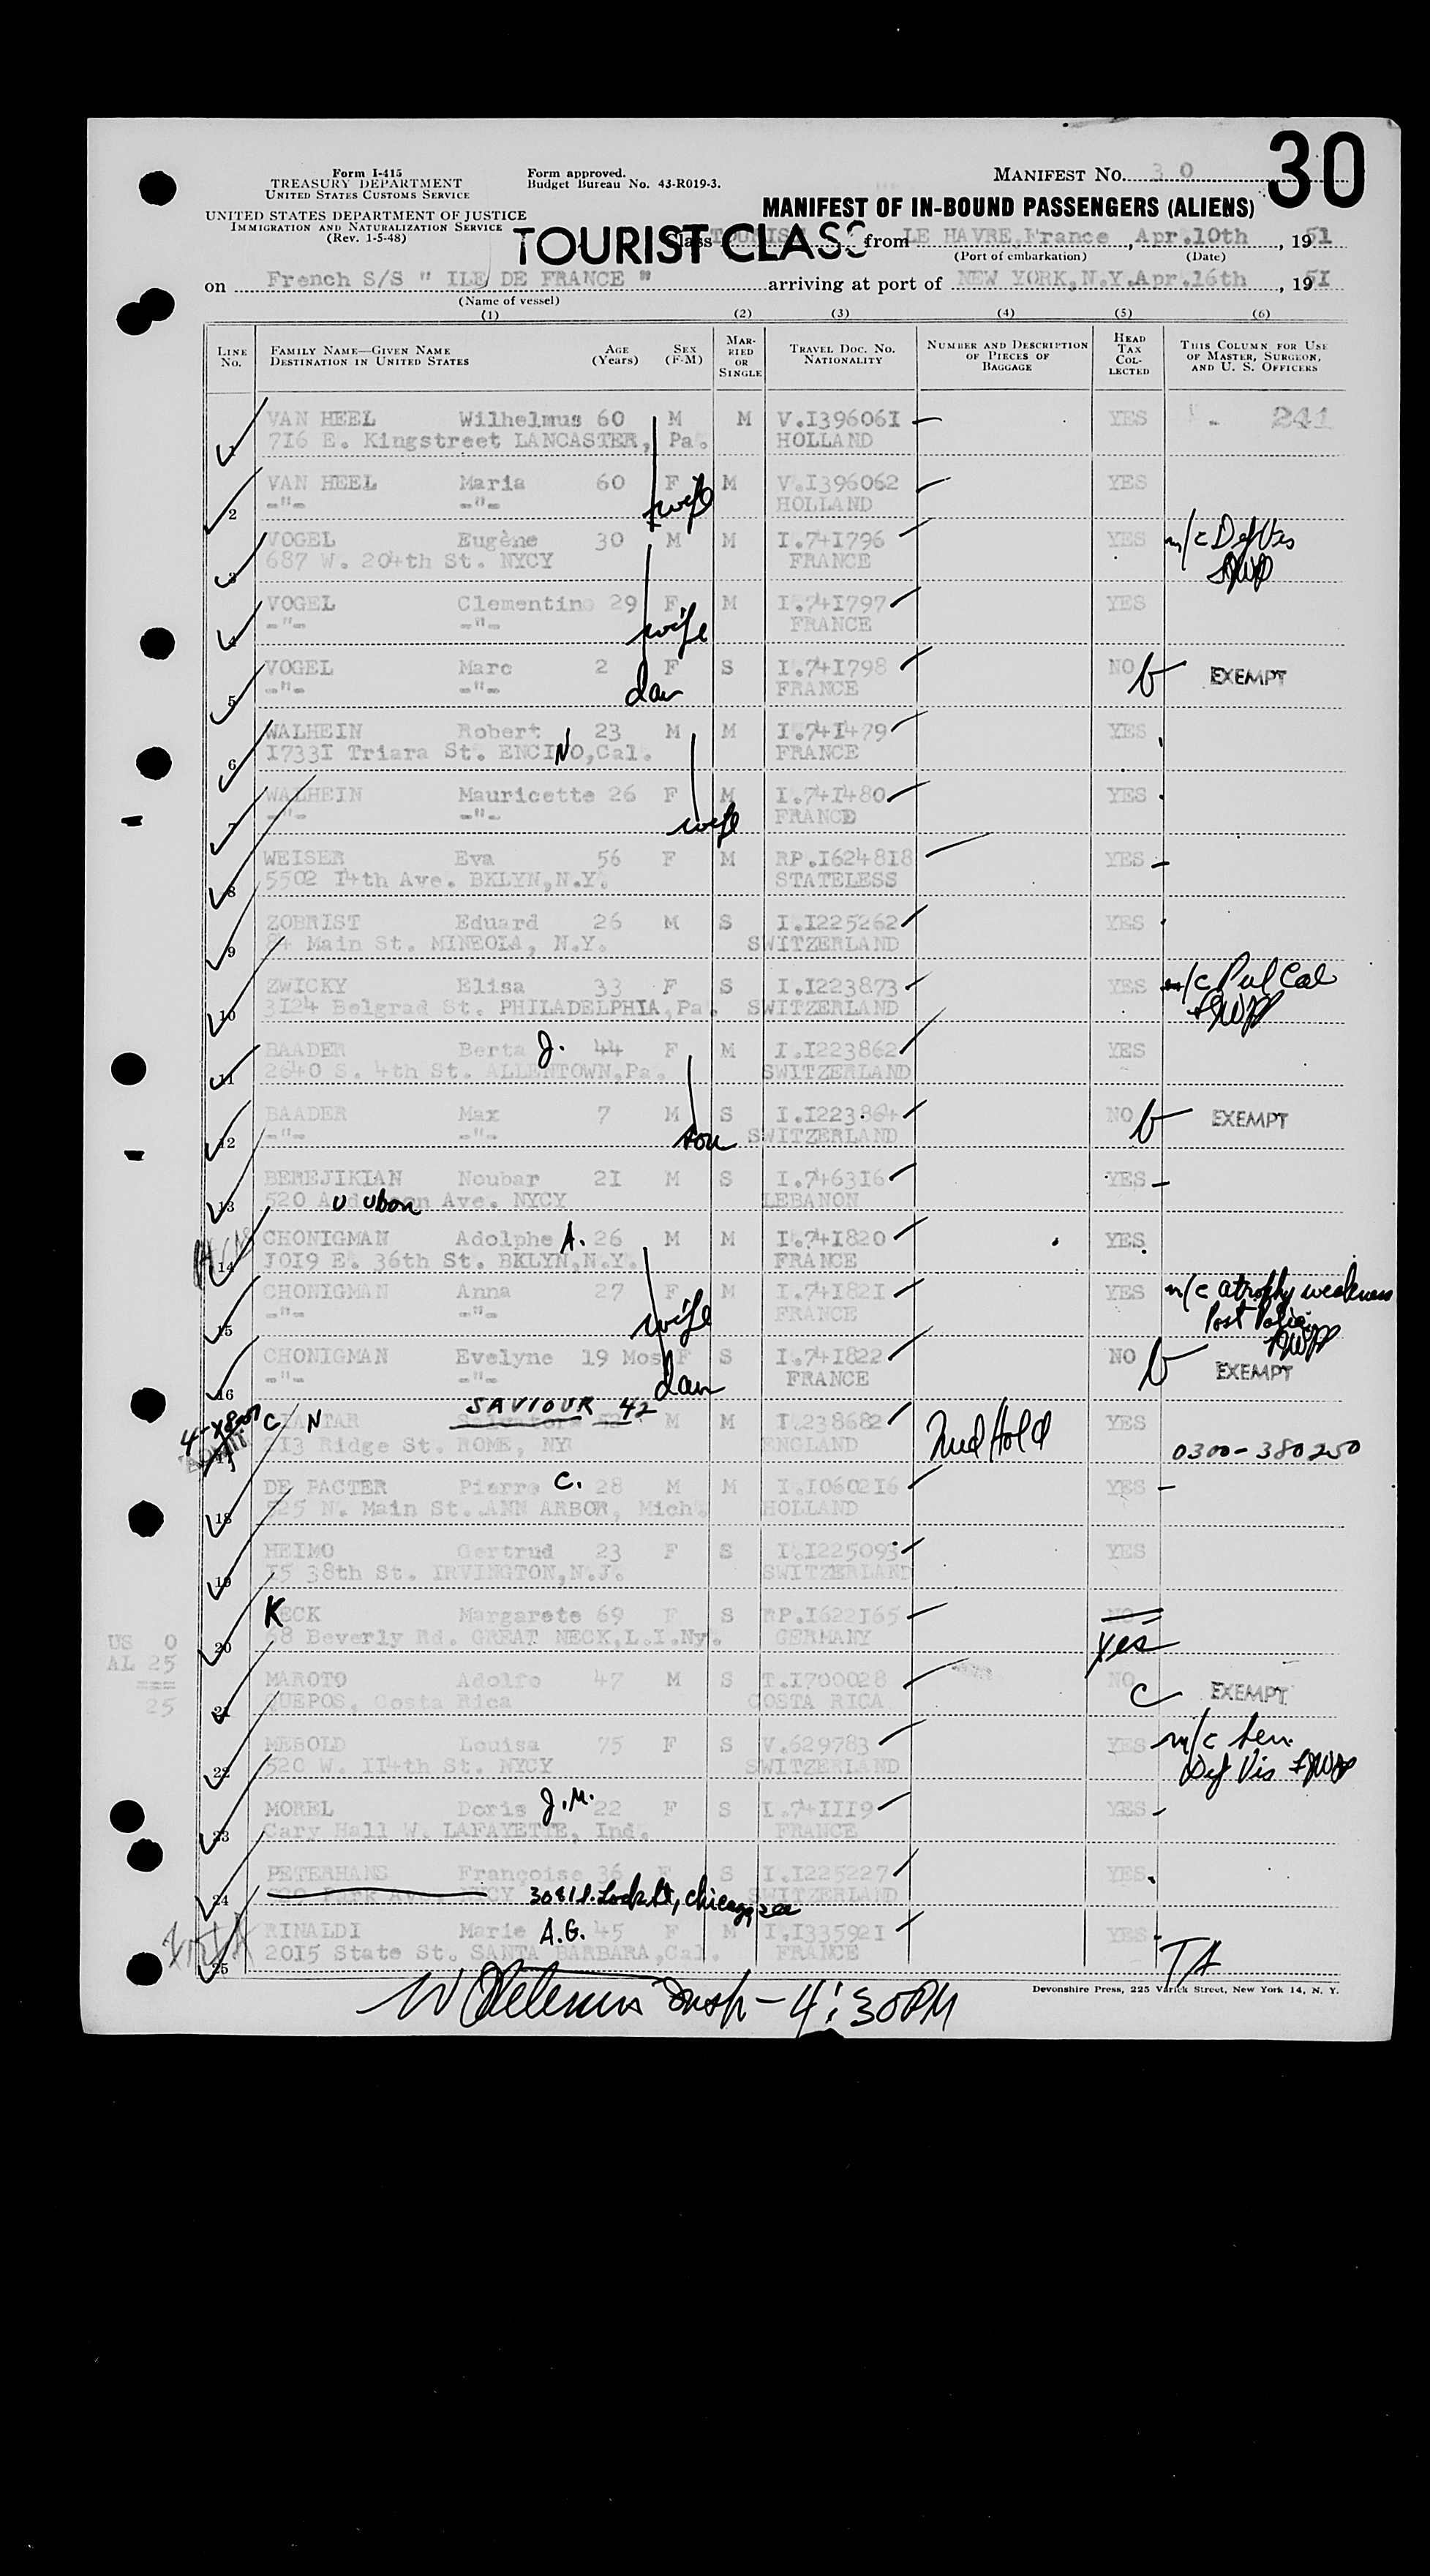 30
Form I-415
TREASURY DEPARTMENT
UNITED STATES CUSTOMS SERVICE
Form approved.
Budget Bureau No. 43-R019-3.
MANIFEST NO. 30
UNITED STATES DEPARTMENT OF JUSTICE
IMMIGRATION AND NATURALIZATION SERVICE
(Rev. 1-5-48)
MANIFEST OF IN-BOUND PASSENGERS (ALIENS)
TOURIST CLASS
Class TOURIST from LE HAVRE, France, Apr. 10th, 1951
(Port of embarkation) (Date)
on French S/S " ILE DE FRANCE " arriving at port of NEW YORK, N.Y. Apr. 16th, 195I
(Name of vessel)
(1) (2) (3) (4) (5) (6)
LINE NO. FAMILY NAME—GIVEN NAME DESTINATION IN UNITED STATES AGE (Years) SEX (F-M) MARRIED OR SINGLE TRAVEL DOC. NO. NATIONALITY NUMBER AND DESCRIPTION OF PIECES OF BAGGAGE HEAD TAX COLLECTED THIS COLUMN FOR USE OF MASTER, SURGEON, AND U. S. OFFICERS
1 VAN HEEL Wilhelmus 60 M M V.I39606I YES 241
7I6 E. Kingstreet LANCASTER, Pa. HOLLAND
2 VAN HEEL Maria 60 F wife M V.I396062 YES
-"- -"- HOLLAND
3 VOGEL Eugène 30 M M I.74I796 YES m/c Def Vis
687 W. 204th St. NYCY FRANCE
4 VOGEL Clementine 29 F wife M I.74I797 YES
-"- -"- FRANCE
5 VOGEL Marc 2 F dau S I.74I798 NO b EXEMPT
-"- -"- FRANCE
6 WALHEIN Robert 23 M M I.74I479 YES
I733I Triara St. ENCINO, Cal. FRANCE
7 WALHEIN Mauricette 26 F wife M I.74I480 YES
-"- -"- FRANCE
8 WEISER Eva 56 F M RP.I6248I8 YES
5502 I4th Ave. BKLYN, N.Y. STATELESS
9 ZOBRIST Eduard 26 M S I.I225262 YES
84 Main St. MINEOLA, N.Y. SWITZERLAND
10 ZWICKY Elisa 33 F S I.I223873 YES m/c Pul Cal
3I24 Belgrad St. PHILADELPHIA, Pa. SWITZERLAND
11 BAADER Berta J. 44 F M I.I223862 YES
2640 S. 4th St. ALLENTOWN, Pa. SWITZERLAND
12 BAADER Max 7 M son S I.I223864 NO b EXEMPT
-"- -"- SWITZERLAND
13 BEREJIKIAN Noubar 2I M S I.7463I6 YES
520 Audubon Ave. NYCY LEBANON
14 CHONIGMAN Adolphe A. 26 M M I.74I820 YES
I0I9 E. 36th St. BKLYN, N.Y. FRANCE
15 CHONIGMAN Anna 27 F wife M I.74I82I YES m/c atrophy weakness
-"- -"- FRANCE Post Polio
16 CHONIGMAN Evelyne 19 Mos F dau S I.74I822 NO b EXEMPT
-"- -"- FRANCE
SAVIOUR 42 M M I.238682 Med Hold YES
2I3 Ridge St. ROME, NY ENGLAND 0300-380250
18 DE PACTER Pierre C. 28 M M I.I0602I6 YES
525 N. Main St. ANN ARBOR, Mich. HOLLAND
19 HEIMO Gertrud 23 F S I.I225093 YES
I5 38th St. IRVINGTON, N.J. SWITZERLAND
20 KECK Margarete 69 F S RP.I622I65 NO yes
68 Beverly Rd. GREAT NECK, L.I.Ny. GERMANY
US 0
AL 25
===
25
21 MAROTO Adolfo 47 M S T.I700028 NO c EXEMPT
QUEPOS, Costa Rica COSTA RICA
22 MEBOLD Louisa 75 F S V.629783 YES m/c Sen.
520 W. II4th St. NYCY SWITZERLAND Def Vis
23 MOREL Doris J.M. 22 F S I.74III9 YES
Cary Hall W. LAFAYETTE, Ind. FRANCE
24 PETERHANS Françoise 36 F S I.I225227 YES
Chicago SWITZERLAND
25 RINALDI Marie A.G. 45 F M I.I33592I YES TA
20I5 State St. SANTA BARBARA, Cal. FRANCE
Devonshire Press, 225 Varick Street, New York 14, N. Y.
Insp - 4:30PM